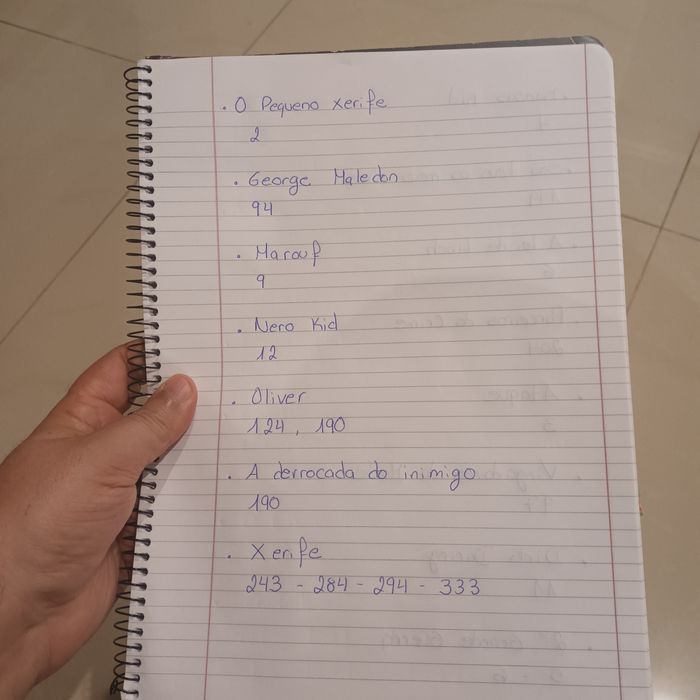 . O Pequeno Xerife
2
. George Maledon
94
. Marouf
9
. Nero Kid
12
. Oliver
124, 190
. A derrocada do inimigo
190
. Xerife
243 - 284 - 294 - 333